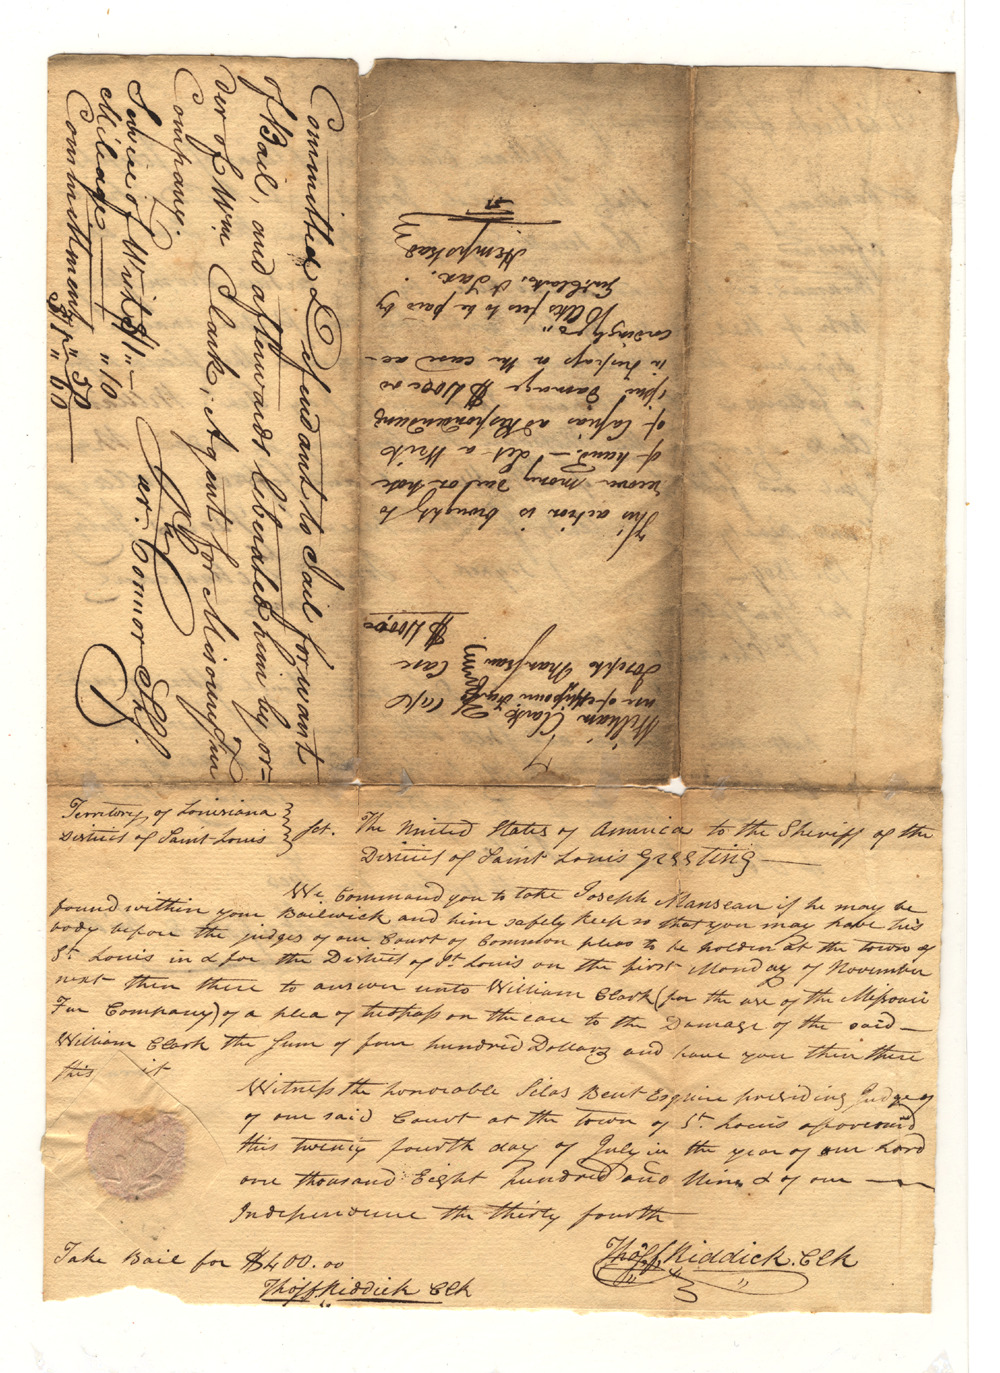 Committed Defendant to Jail for want
of Bail, and afterwards liberated him by or-
der of Wm. Clark, Agent for Misouri Fur
Company.
Jar. Connor Shff.
Service of Writ $1 "
Mileage " 10
Commitment " 50
$1 " 60
William Clark
use of Missouri Fur Com
vs Case
Joseph Manseau
$400.00
This action is brought to
recover money had on note
of hand.— Let a Writ
of Capias ad Respondendum
issue Damage $400.00
in trespass on the case ac-
cordingly
Clks fees to be paid by
Hempstead
Territory of Louisiana
District of Saint Louis } sct. The United States of America to the Sheriff of the
District of Saint Louis Greeting —
We Command you to take Joseph Manseau if he may be
found within your Bailwick and him safely keep so that you may have his
body before the judges of our Court of Common pleas to be holden at the town of
St. Louis in & for the District of St. Louis on the first Monday of November
next then there to answer unto William Clark (for the use of the Missouri
Fur Company) of a plea of trespass on the case to the Damage of the said —
William Clark the sum of four hundred Dollars and have you then there
this it
Witness the honorable Silas Bent Esquire presiding Judge of
of our said Court at the town of St. Louis aforesaid
this twenty fourth day of July in the year of our Lord
one thousand Eight hundred and Nine & of our —
Independence the thirty fourth
Thos. F. Riddick. Clk
Take Bail for $400.00
Thos. F. Riddick Clk